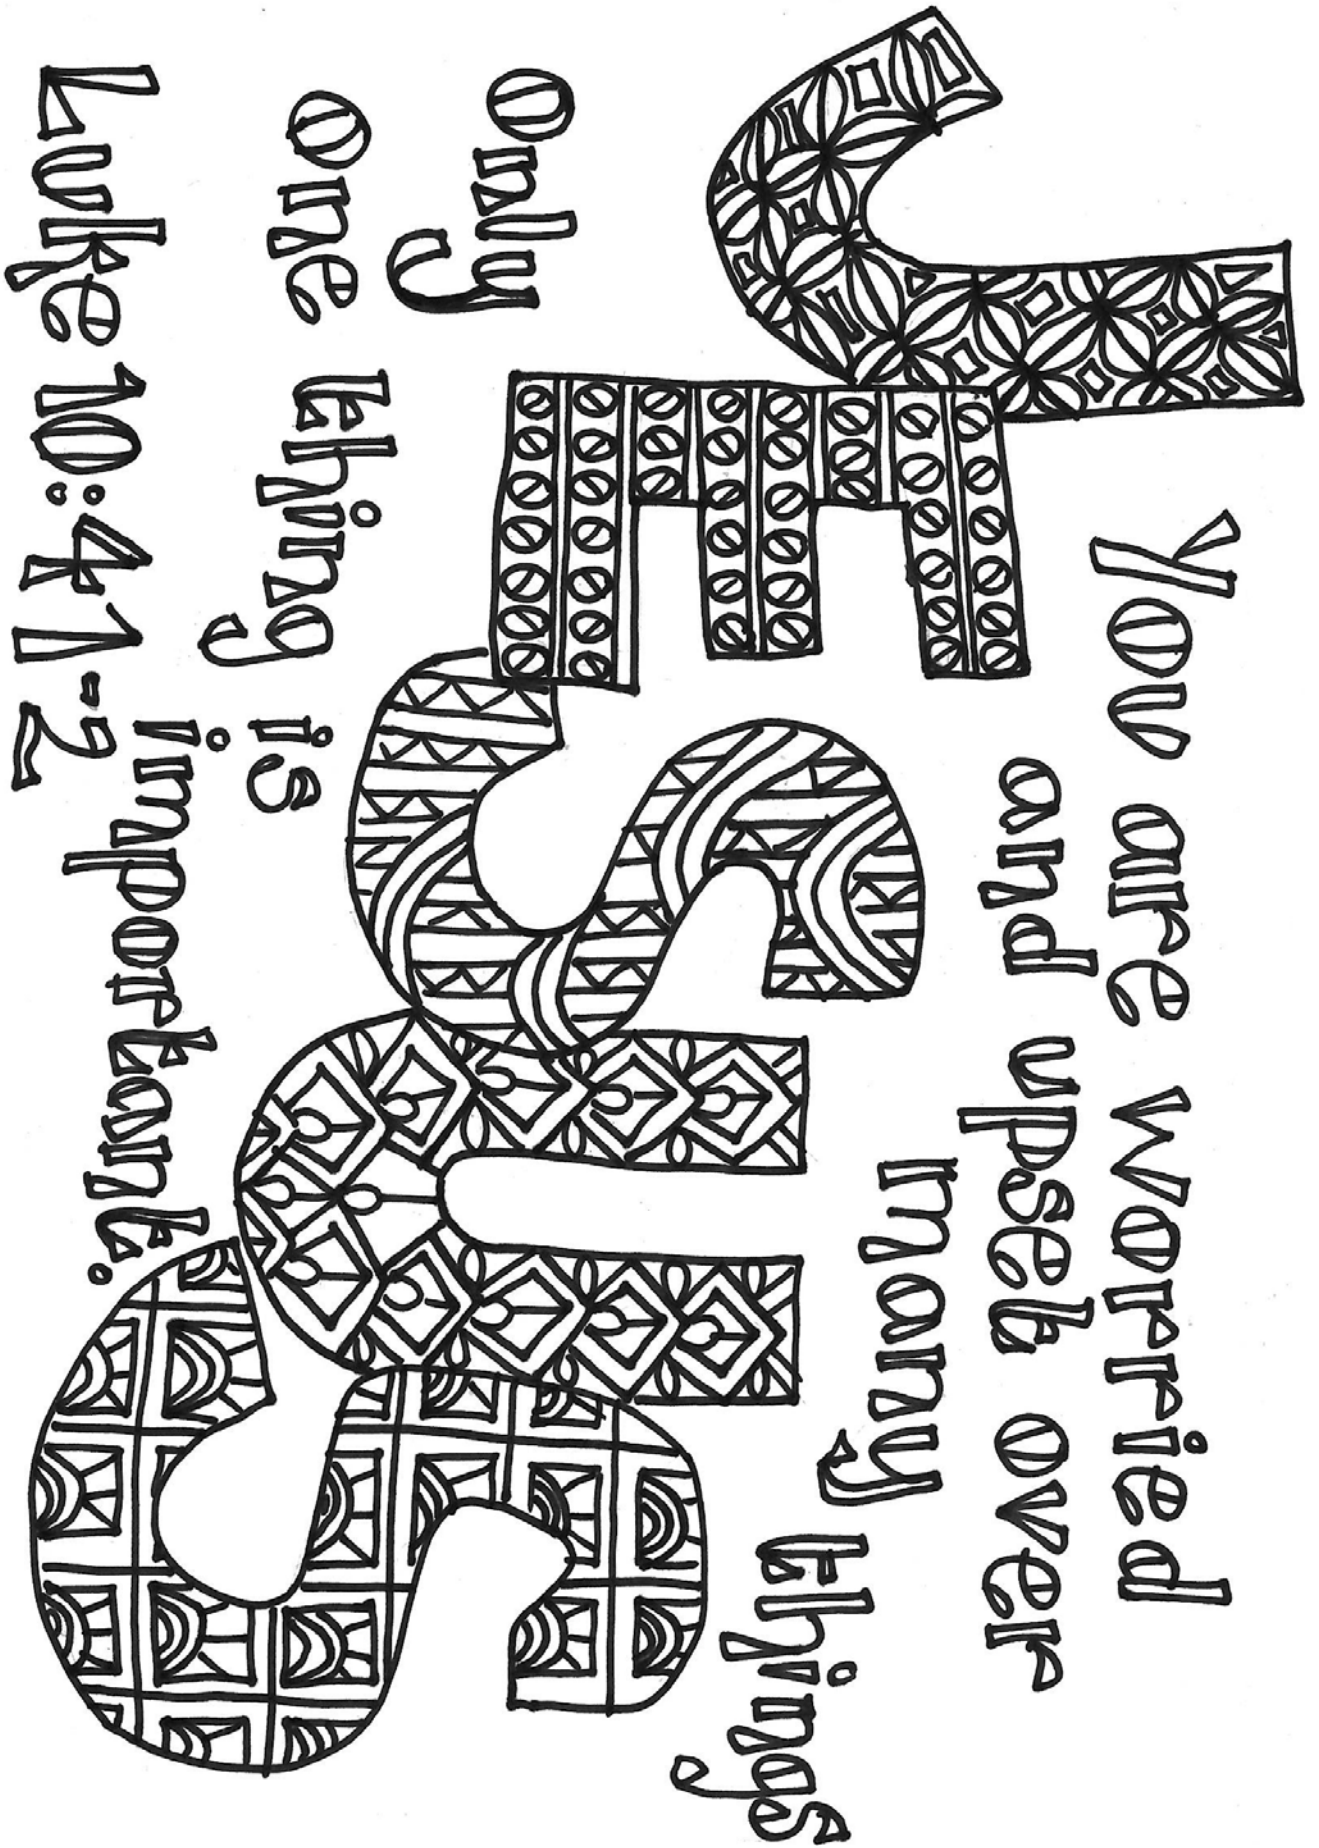 You are worried
and upset over
many things
JESUS
Only
One thing is
important.
Luke 10:41-2